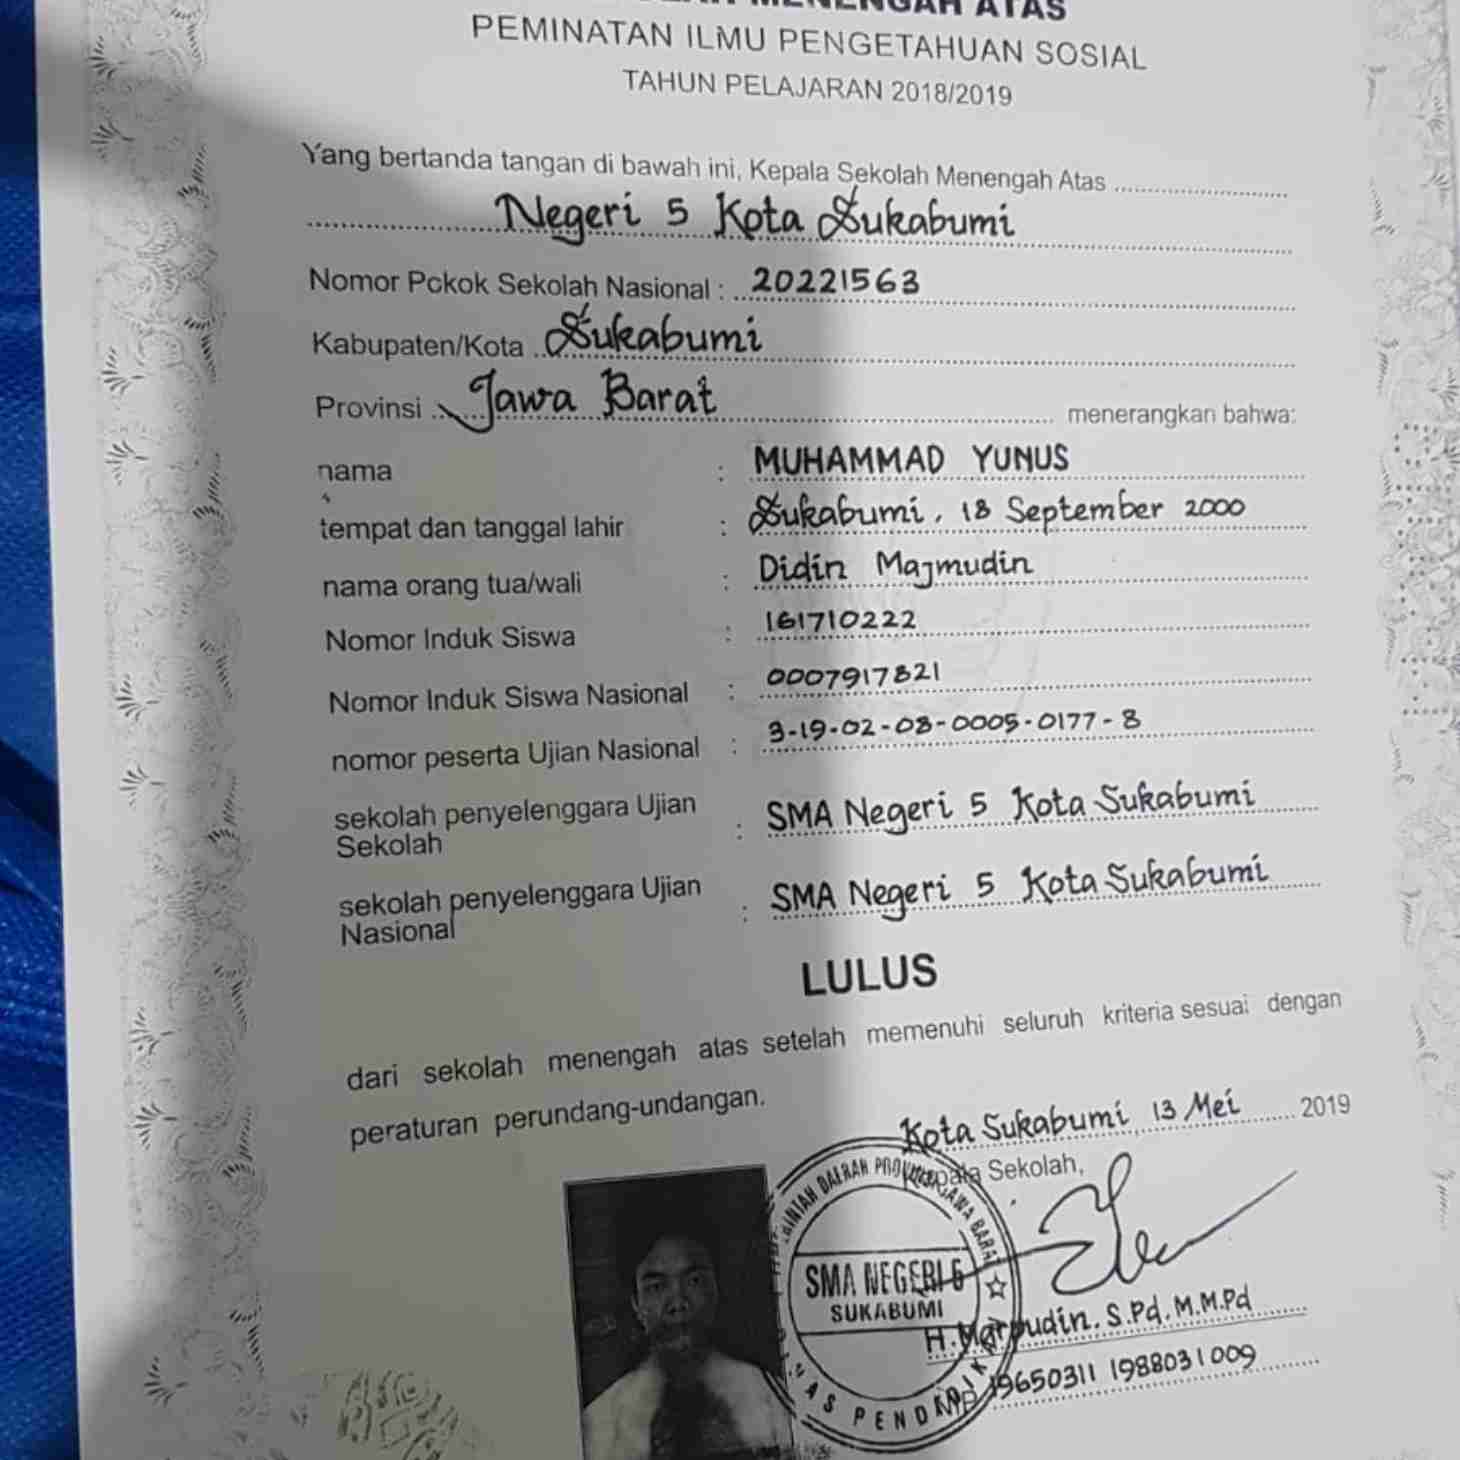 MENENGAH ATAS
PEMINATAN ILMU PENGETAHUAN SOSIAL
TAHUN PELAJARAN 2018/2019
Yang bertanda tangan di bawah ini, Kepala Sekolah Menengah Atas
Negeri 5 Kota Sukabumi
Nomor Pokok Sekolah Nasional : 20221563
Kabupaten/Kota Sukabumi
Provinsi Jawa Barat menerangkan bahwa:
nama : MUHAMMAD YUNUS
tempat dan tanggal lahir : Sukabumi, 18 September 2000
nama orang tua/wali : Didin Majmudin
Nomor Induk Siswa : 161710222
Nomor Induk Siswa Nasional : 0007917821
nomor peserta Ujian Nasional : 3-19-02-08-0005-0177-8
sekolah penyelenggara Ujian
Sekolah : SMA Negeri 5 Kota Sukabumi
sekolah penyelenggara Ujian
Nasional : SMA Negeri 5 Kota Sukabumi
LULUS
dari sekolah menengah atas setelah memenuhi seluruh kriteria sesuai dengan
peraturan perundang-undangan.
Kota Sukabumi, 13 Mei 2019
Kepala Sekolah,
SMA NEGERI 5
SUKABUMI
H. Marpudin. S.Pd. M.M.Pd
NIP 19650311 1988031009